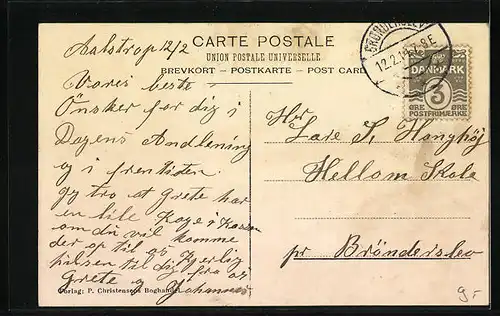 Aalstrop 12/2
CARTE POSTALE
UNION POSTALE UNIVERSELLE
BREVKORT - POSTKARTE - POST CARD
12.2.1 7-8 E
DANMARK
3
ØRE ØRE
POSTFRIMÆRKE
Vores beste
Ønsker for dig i
Dagens Andledning
og i fremtiden.
jeg tro at Grete har
en lile Kage i Kassen
om du vil komme
der op til os Kjerlig
hilsen til dig fra os
Grete og Johannes
Hr
Lare S. Hanghøj
Hellom Skole
pr Brønderslev
Forlag: P. Christensens Boghandel